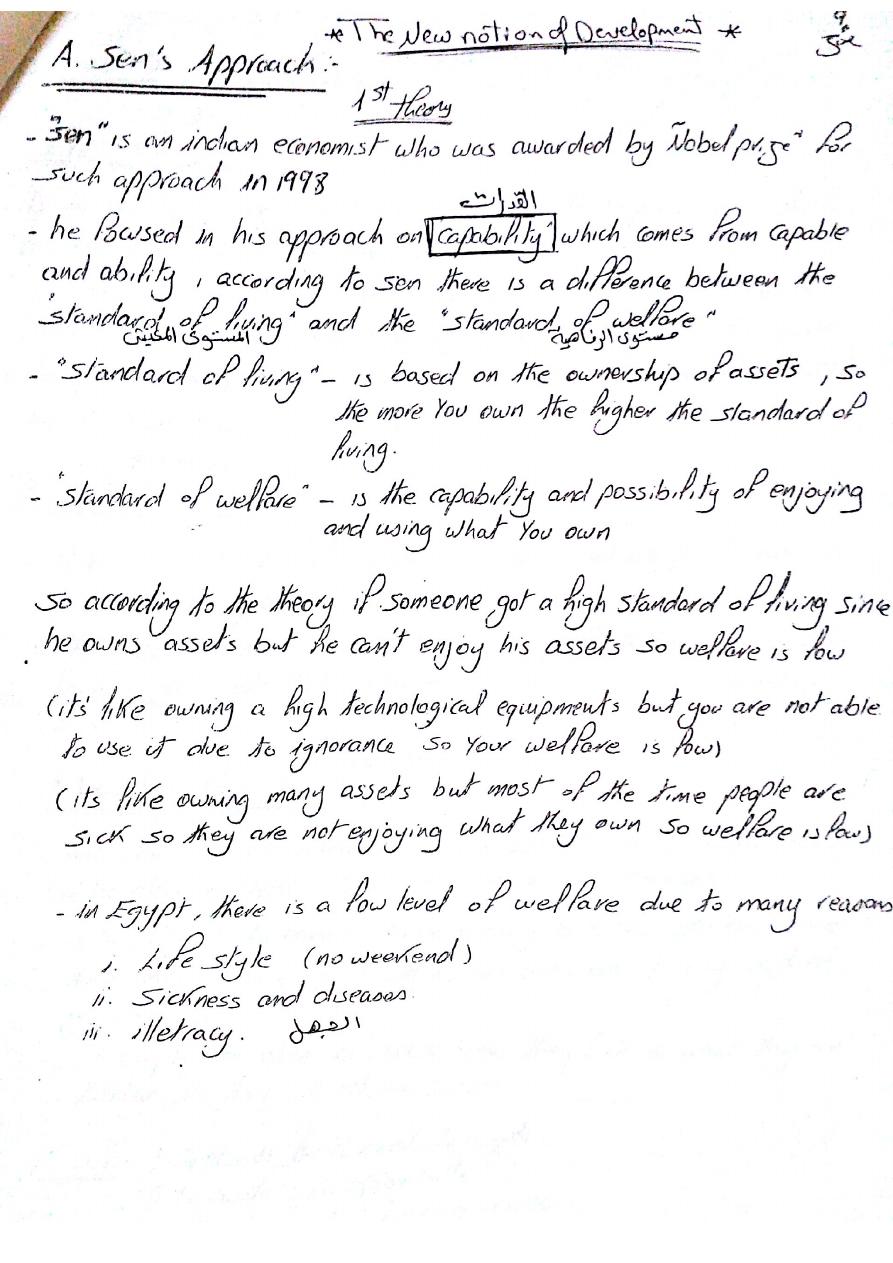 * The New notion of Development *
9
A. Sen's Approach :-
1st theory
- "Sen" is an indian economist who was awarded by "Nobel prize" for
such approach in 1998
القدرات
- he focused in his approach on "capability" which comes from capable
and ability, according to sen there is a difference between the
"standard of living" and the "standard of welfare"
المستوى المعيشى مستوى الرفاهية
- "standard of living" - is based on the ownership of assets, so
the more you own the higher the standard of
living.
- "standard of welfare" - is the capability and possibility of enjoying
and using what you own
so according to the theory if someone got a high standard of living since
he owns assets but he can't enjoy his assets so welfare is low
(its like owning a high technological equipments but you are not able
to use it due to ignorance so your welfare is low)
(its like owning many assets but most of the time people are
sick so they are not enjoying what they own so welfare is low)
- in Egypt, there is a low level of welfare due to many reasons
i. Life style (no weekend)
ii. Sickness and diseases.
iii. illetracy. الجهل